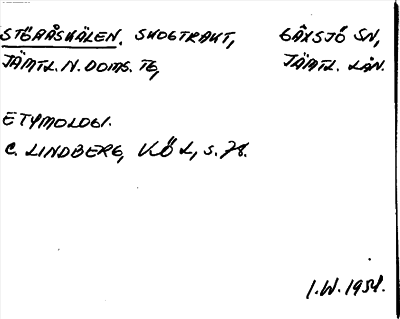 STÖRÅSKÄLEN. SKOGTRAKT, GÅXSJÖ SN,
JÄMTL. N. DOMS. TG, JÄMTL. LÄN.
ETYMOLOGI.
C. LINDBERG, KÖL, S. 78.
I.W. 1954.